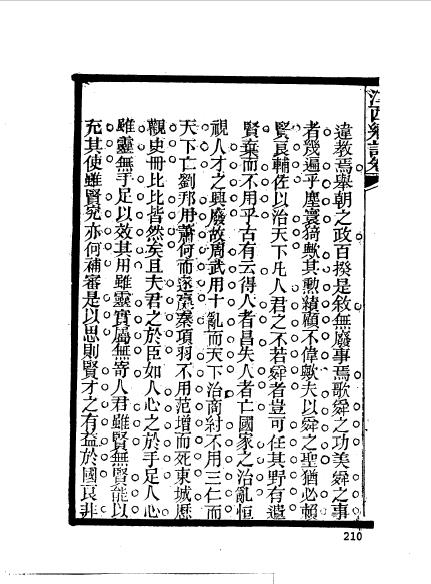 違教焉舉朝之政百揆是敘無廢事焉歌舜之功美舜之事
者幾遍乎塵寰猗歟其勲績顧不偉歟夫以舜之聖猶必賴
賢良輔佐以治天下凡人君之不若舜者豈可任其野有遺
賢棄而不用乎古有云得人者昌失人者亡國家之治亂恒
視人才之興廢故周武用十亂而天下治商紂不用三仁而
天下亡劉邦用蕭何而遂秦項羽不用范增而死東城歷
觀史冊比比皆然矣且夫君之於臣如人心之於手足人心
雖靈無手足以效其用雖靈實屬無寄人君雖賢無賢能以
充其使雖賢究亦何補審是以思則賢才之有益於國良非
210